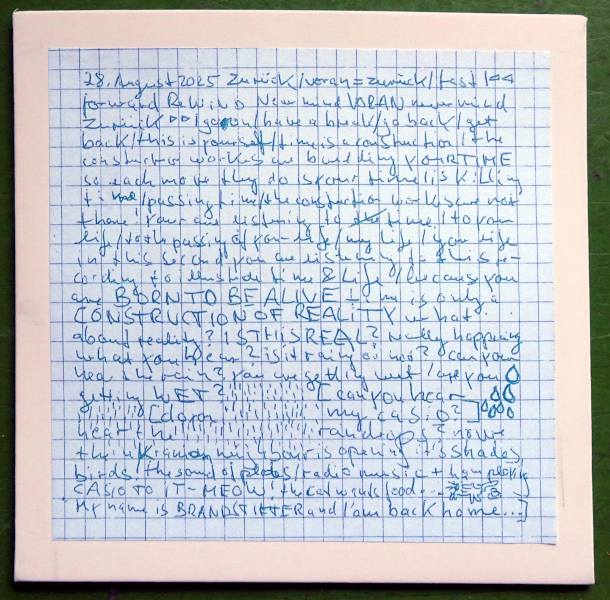 28. August 2025 Zurück/voran = zurück/fast
forward ReWiND Nevermind VORAN nevermind
Zurück go on/have a break/go back/get
back/this is yourself/time is a construction/the
construction workes are building YOURTIME
so each move they do is your time/is killing
time/passing time/the construction workes are not
there! Your are listening to the time/to your
life/to the passing of your life/my life/your life
in this second you are listening to this re-
cording to time & life/because you
are BORN TO BE ALIVE time is only a
CONSTRUCTION OF REALITY what
about reality? IS THIS REAL? really happening
what you hear? is it raining or not? can you
hear the rain? you are getting wet/are you
getting WET? can you hear
my casio?
hear the raindrops? now
the neighbour is opening it's shades,
birds/the sound of radio music +
CASIO TO IT-MEOW! the cat wants food...
My name is BRANDSTIFTER and I am back home...